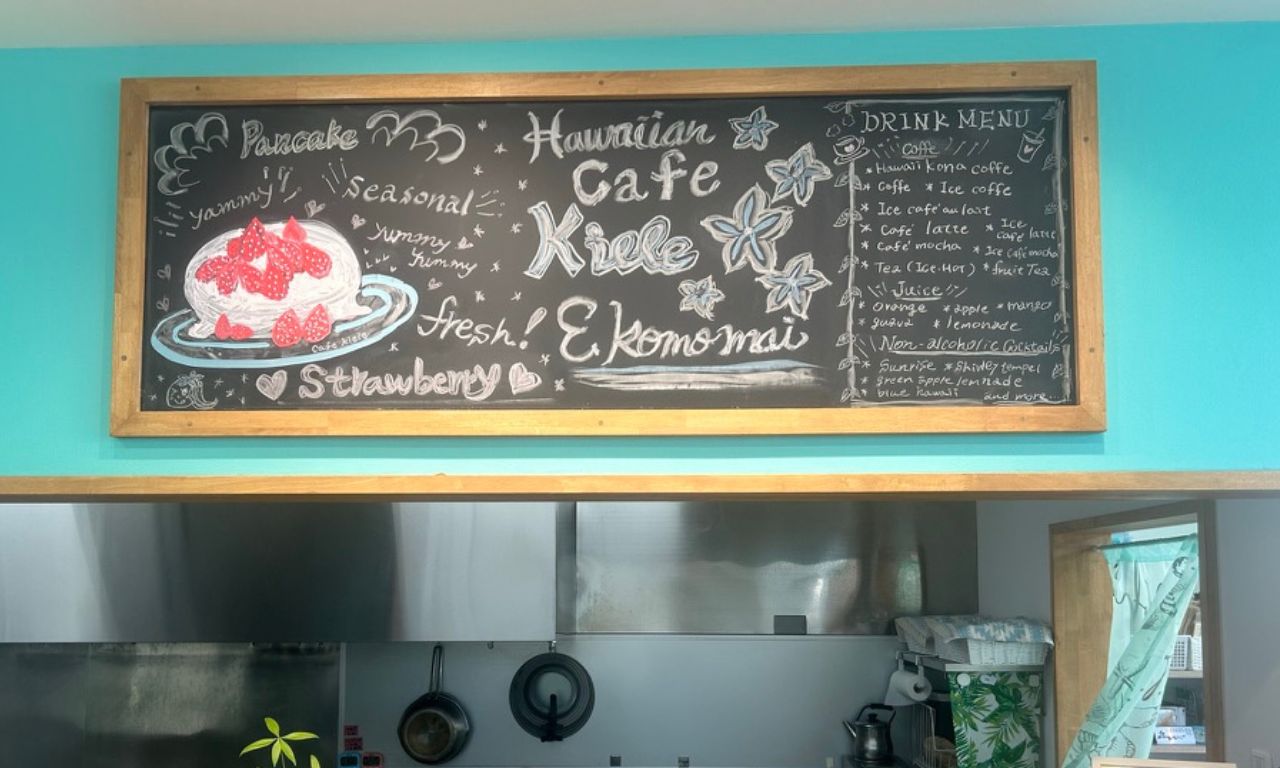 Pancake
yammy
Seasonal
yummy
yummy
fresh!
Cafe Kiele
Strawberry
Hawaiian
Cafe
Kiele
E komo mai
DRINK MENU
Coffe
* Hawaii kona coffe
* Coffe * Ice coffe
* Ice café au lait
* Café latte * Ice café latte
* Café mocha * Ice café mocha
* Tea (Ice・Hot) * fruit Tea
Juice
* orange * apple * mango
* guava * lemonade
Non-alcoholic Cocktails
* Sunrise * Shirley tempel
* green apple lemonade
* blue hawaii and more...